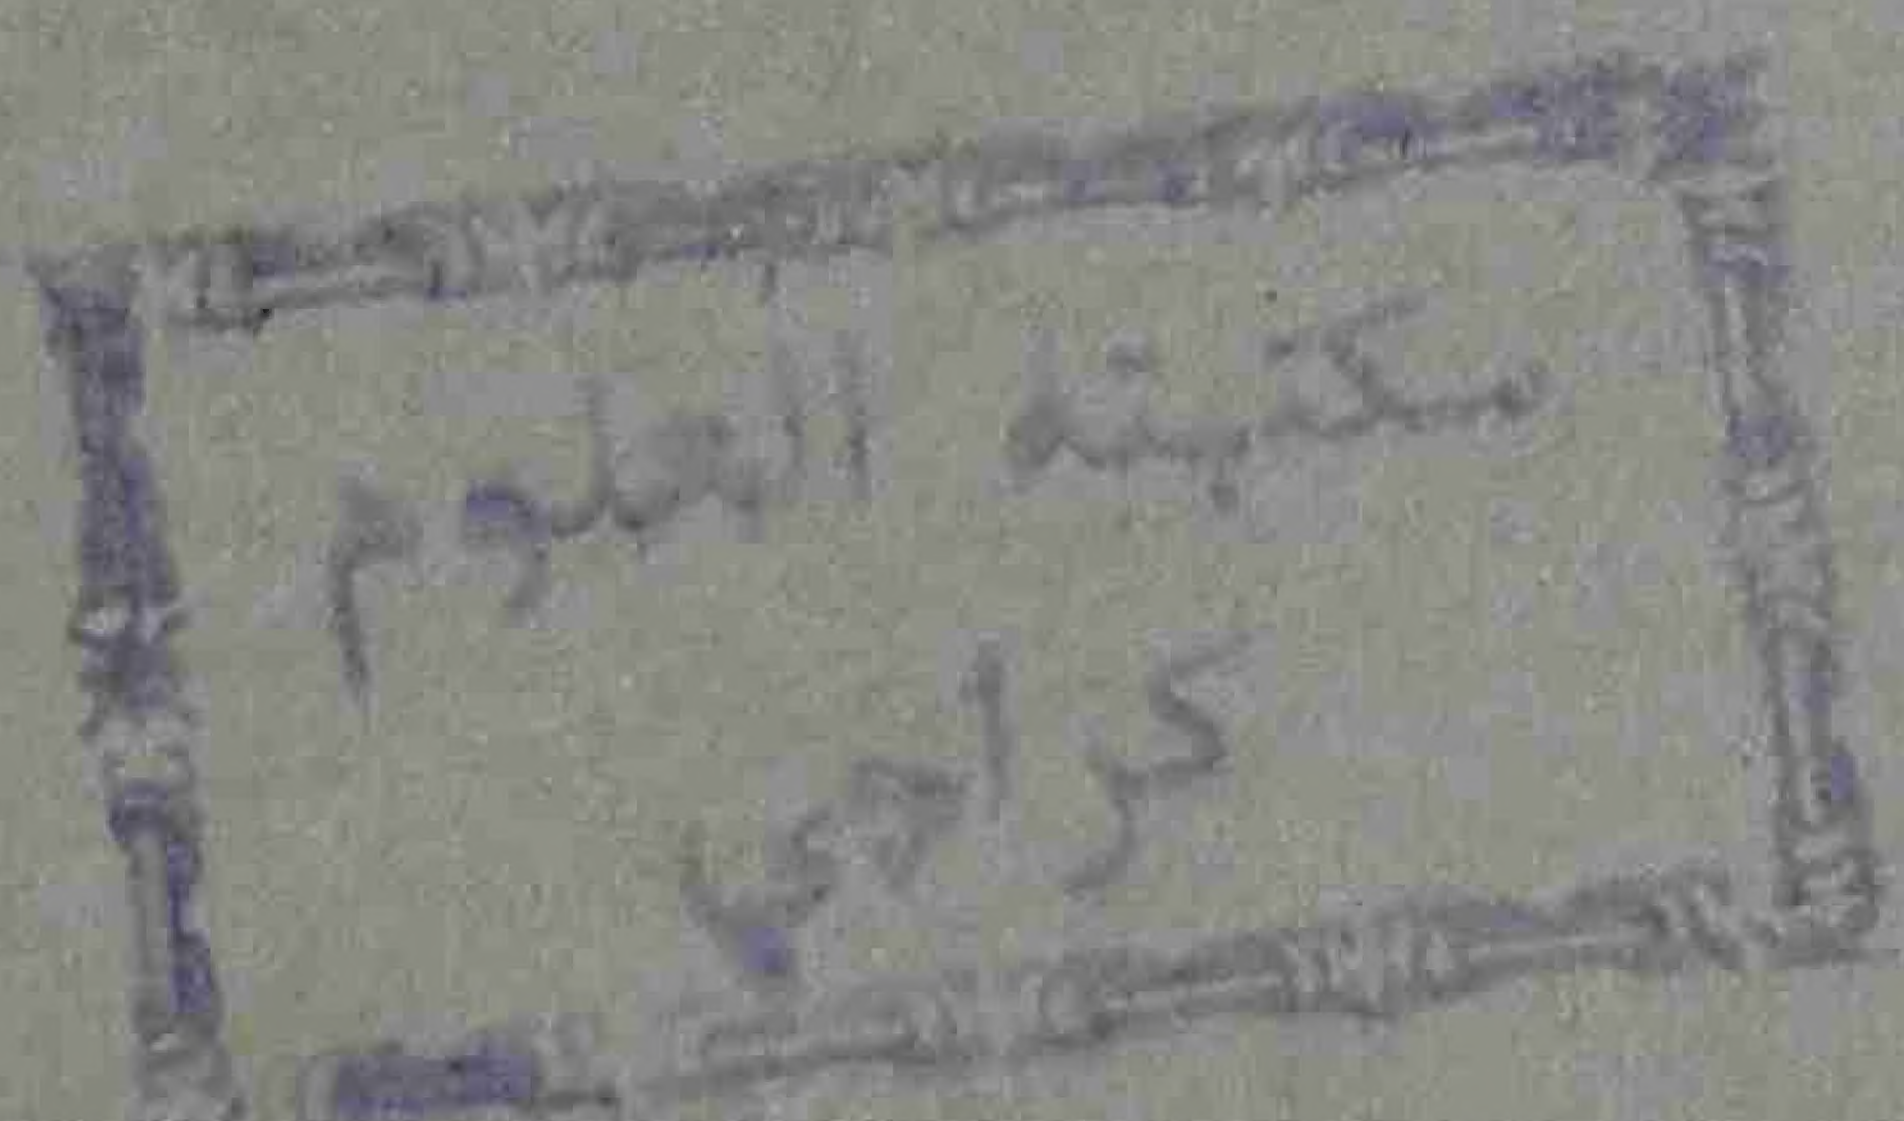 مكتبة العلوم
كراچی